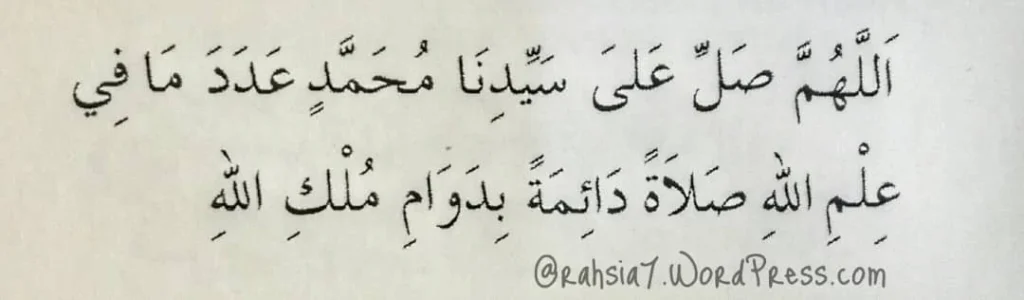 اَللَّهُمَّ صَلِّ عَلىَ سَيِّدِنَا مُحَمَّدٍ عَدَدَ مَا فِي
عِلْمِ اللهِ صَلَاةً دَائِمَةً بِدَوَامِ مُلْكِ اللهِ
@rahsia7.WordPress.com